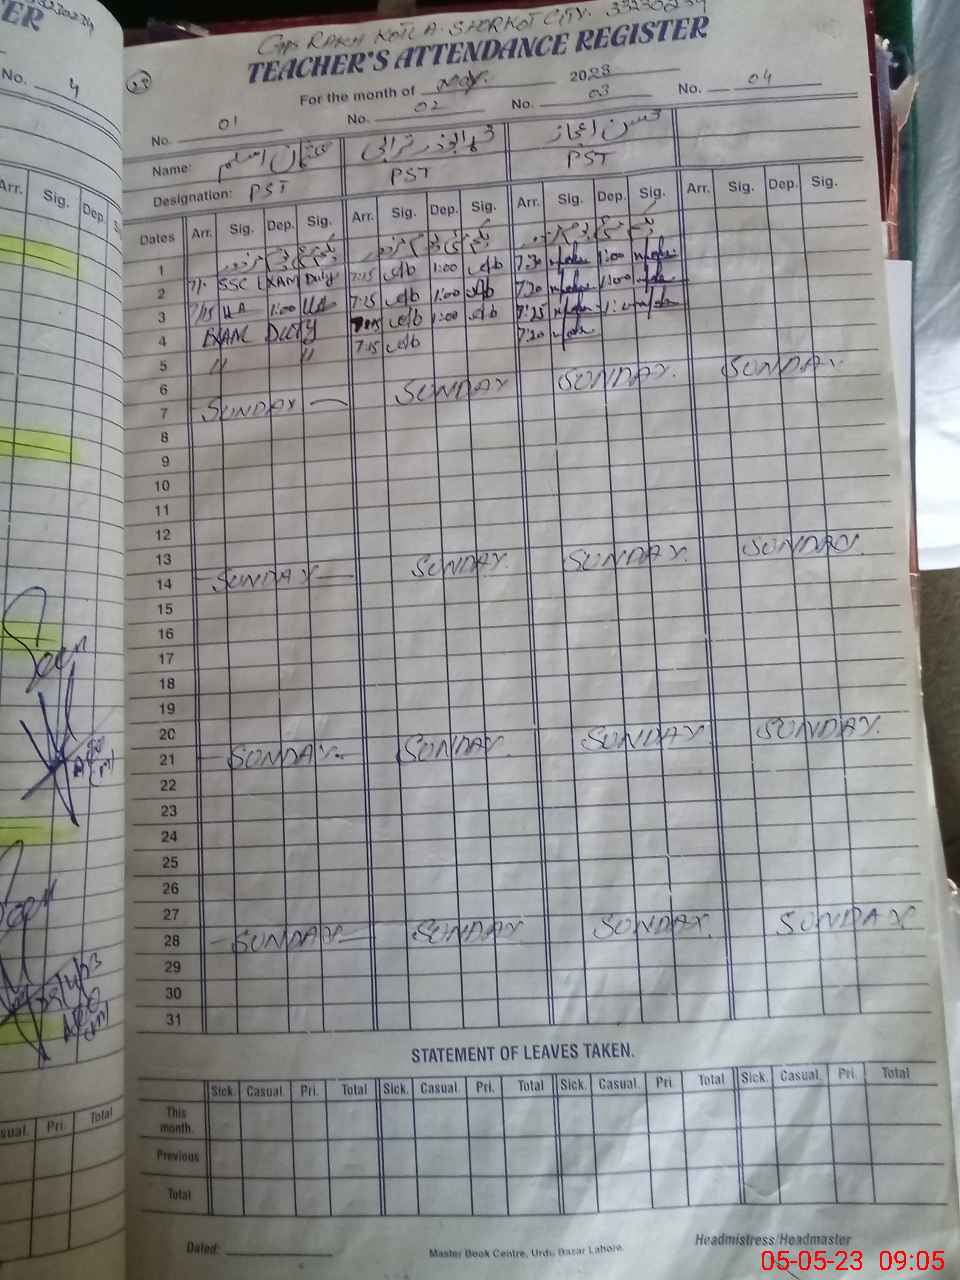 ER
33230234
No. 4
Arr. Sig. Dep. S
Seen
Seen
sual. Pri. Total
29
GPS RAKH KOTLA SHORKOT CITY. 33230234
TEACHER'S ATTENDANCE REGISTER
For the month of May. 2023
No. 01 No. 02 No. 03 No. 04
Name: عثمان اسلم حسن اعجاز
Designation: PST PST PST
Dates Arr. Sig. Dep. Sig. Arr. Sig. Dep. Sig. Arr. Sig. Dep. Sig. Arr. Sig. Dep. Sig.
1 یکم مئی یوم مزدور یکم مئی یوم مزدور یکم مئی یوم مزدور
2 SSC EXAM Duty 7:15 1:00 7:30 1:00
3 7/15 UA 1:00 UA 7:15 1:00 7:20 1:00
4 EXAM DUTY 7:15 1:00 7:25
5 " " 7:15 7:20
6
7 SUNDAY SUNDAY SUNDAY. SUNDAY.
8
9
10
11
12
13
14 SUNDAY SUNDAY. SUNDAY. SUNDAY.
15
16
17
18
19
20
21 SUNDAY. SUNDAY. SUNDAY. SUNDAY.
22
23
24
25
26
27
28 SUNDAY SUNDAY SUNDAY. SUNDAY
29
30
31
STATEMENT OF LEAVES TAKEN.
Sick. Casual. Pri. Total Sick. Casual. Pri. Total Sick. Casual. Pri. Total Sick. Casual. Pri. Total
This month.
Previous
Total
Dated: Master Book Centre, Urdu Bazar Lahore. Headmistress/Headmaster
05-05-23 09:05